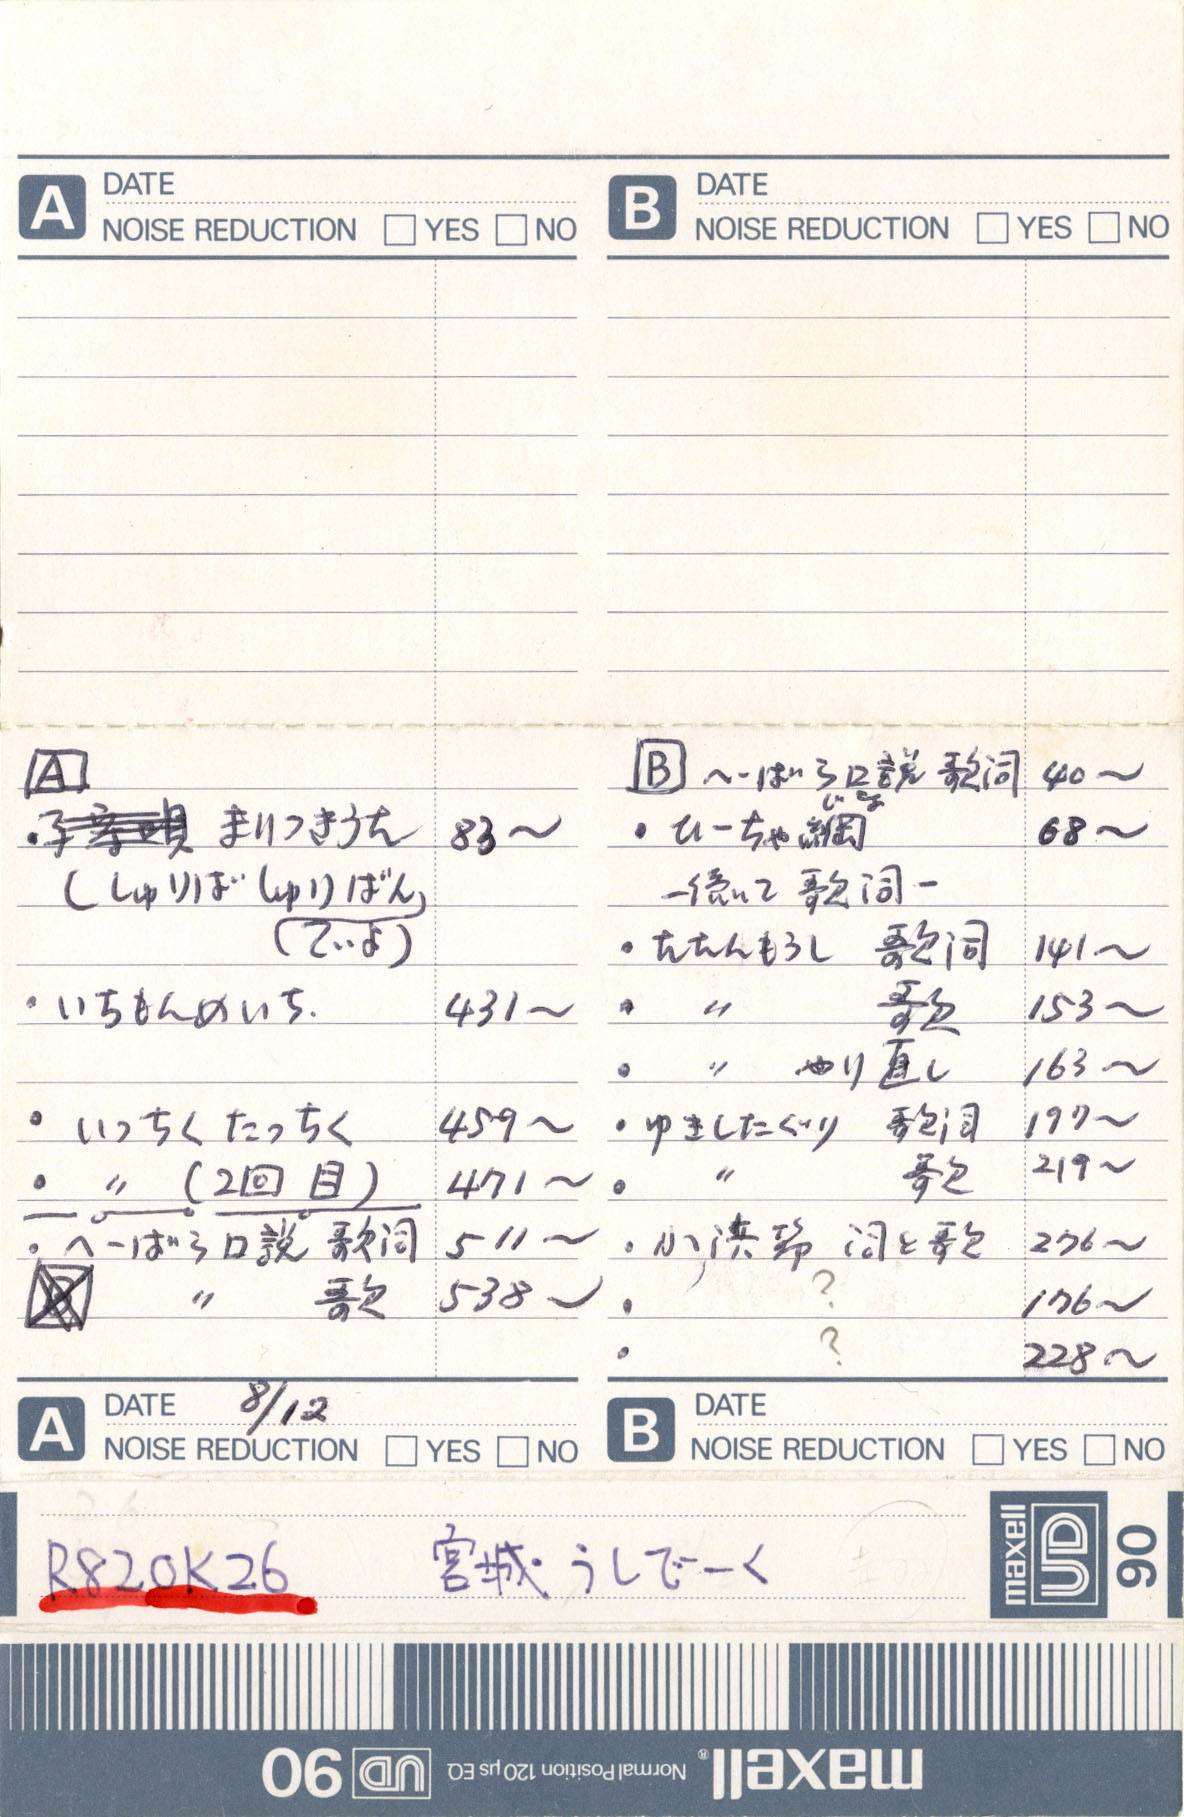 A DATE
NOISE REDUCTION □ YES □ NO
B DATE
NOISE REDUCTION □ YES □ NO
A
・ まりつきうた 83〜
(しゅりば しゅりばん)
(ていよ)
・いちもんめいち. 431〜
・いっちくたっちく 459〜
・〃 (2回目) 471〜
・へーばる口説 歌詞 511〜
〃 歌 538〜
B へーばる口説 歌詞 40〜
・ひーちゃ綱 68〜
-続いて 歌詞-
・たたんもうし 歌詞 141〜
・〃 歌 153〜
・〃 やり直し 163〜
・ゆきしたぐり 歌詞 197〜
・〃 歌 219〜
・小浜節 詞と歌 276〜
・? 176〜
・? 228〜
A DATE 8/12
NOISE REDUCTION □ YES □ NO
B DATE
NOISE REDUCTION □ YES □ NO
R820K26 宮城・うしでーく
maxell UD 90
maxell® Normal Position 120 μs EQ UD 90